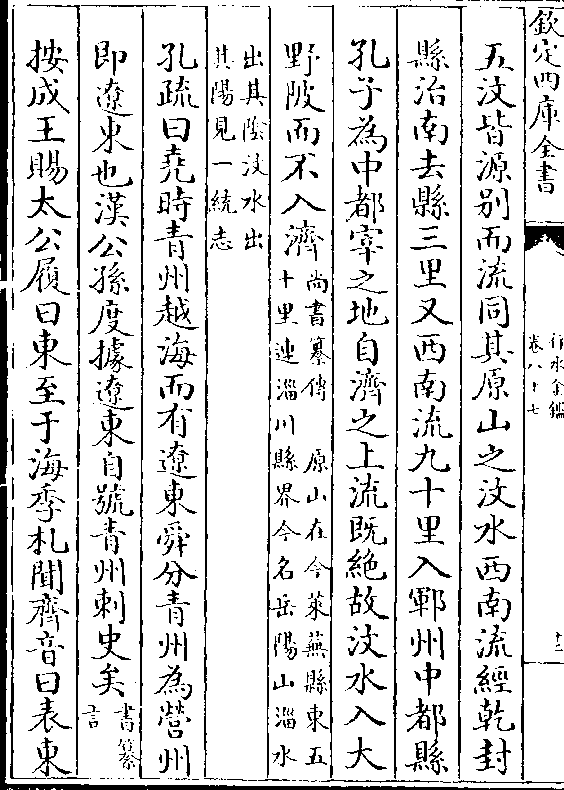 欽定四庫全書
行水金鑑
卷八十七
十二
五汶皆源别而流同其原山之汶水西南流經乾封
縣治南去縣三里又西南流九十里入鄆州中都縣
孔子為中都宰之地自濟之上流既絶故汶水入大
野陂而不入濟尚書纂傳 原山在今萊蕪縣東五
十里連淄川縣界今名岳陽山淄水
出其陰汶水出
其陽見一統志
孔疏曰堯時青州越海而有遼東舜分青州為營州
即遼東也漢公孫度據遼東自號青州刺史矣書纂
言
按成王賜太公履曰東至于海季札聞齊音曰表東